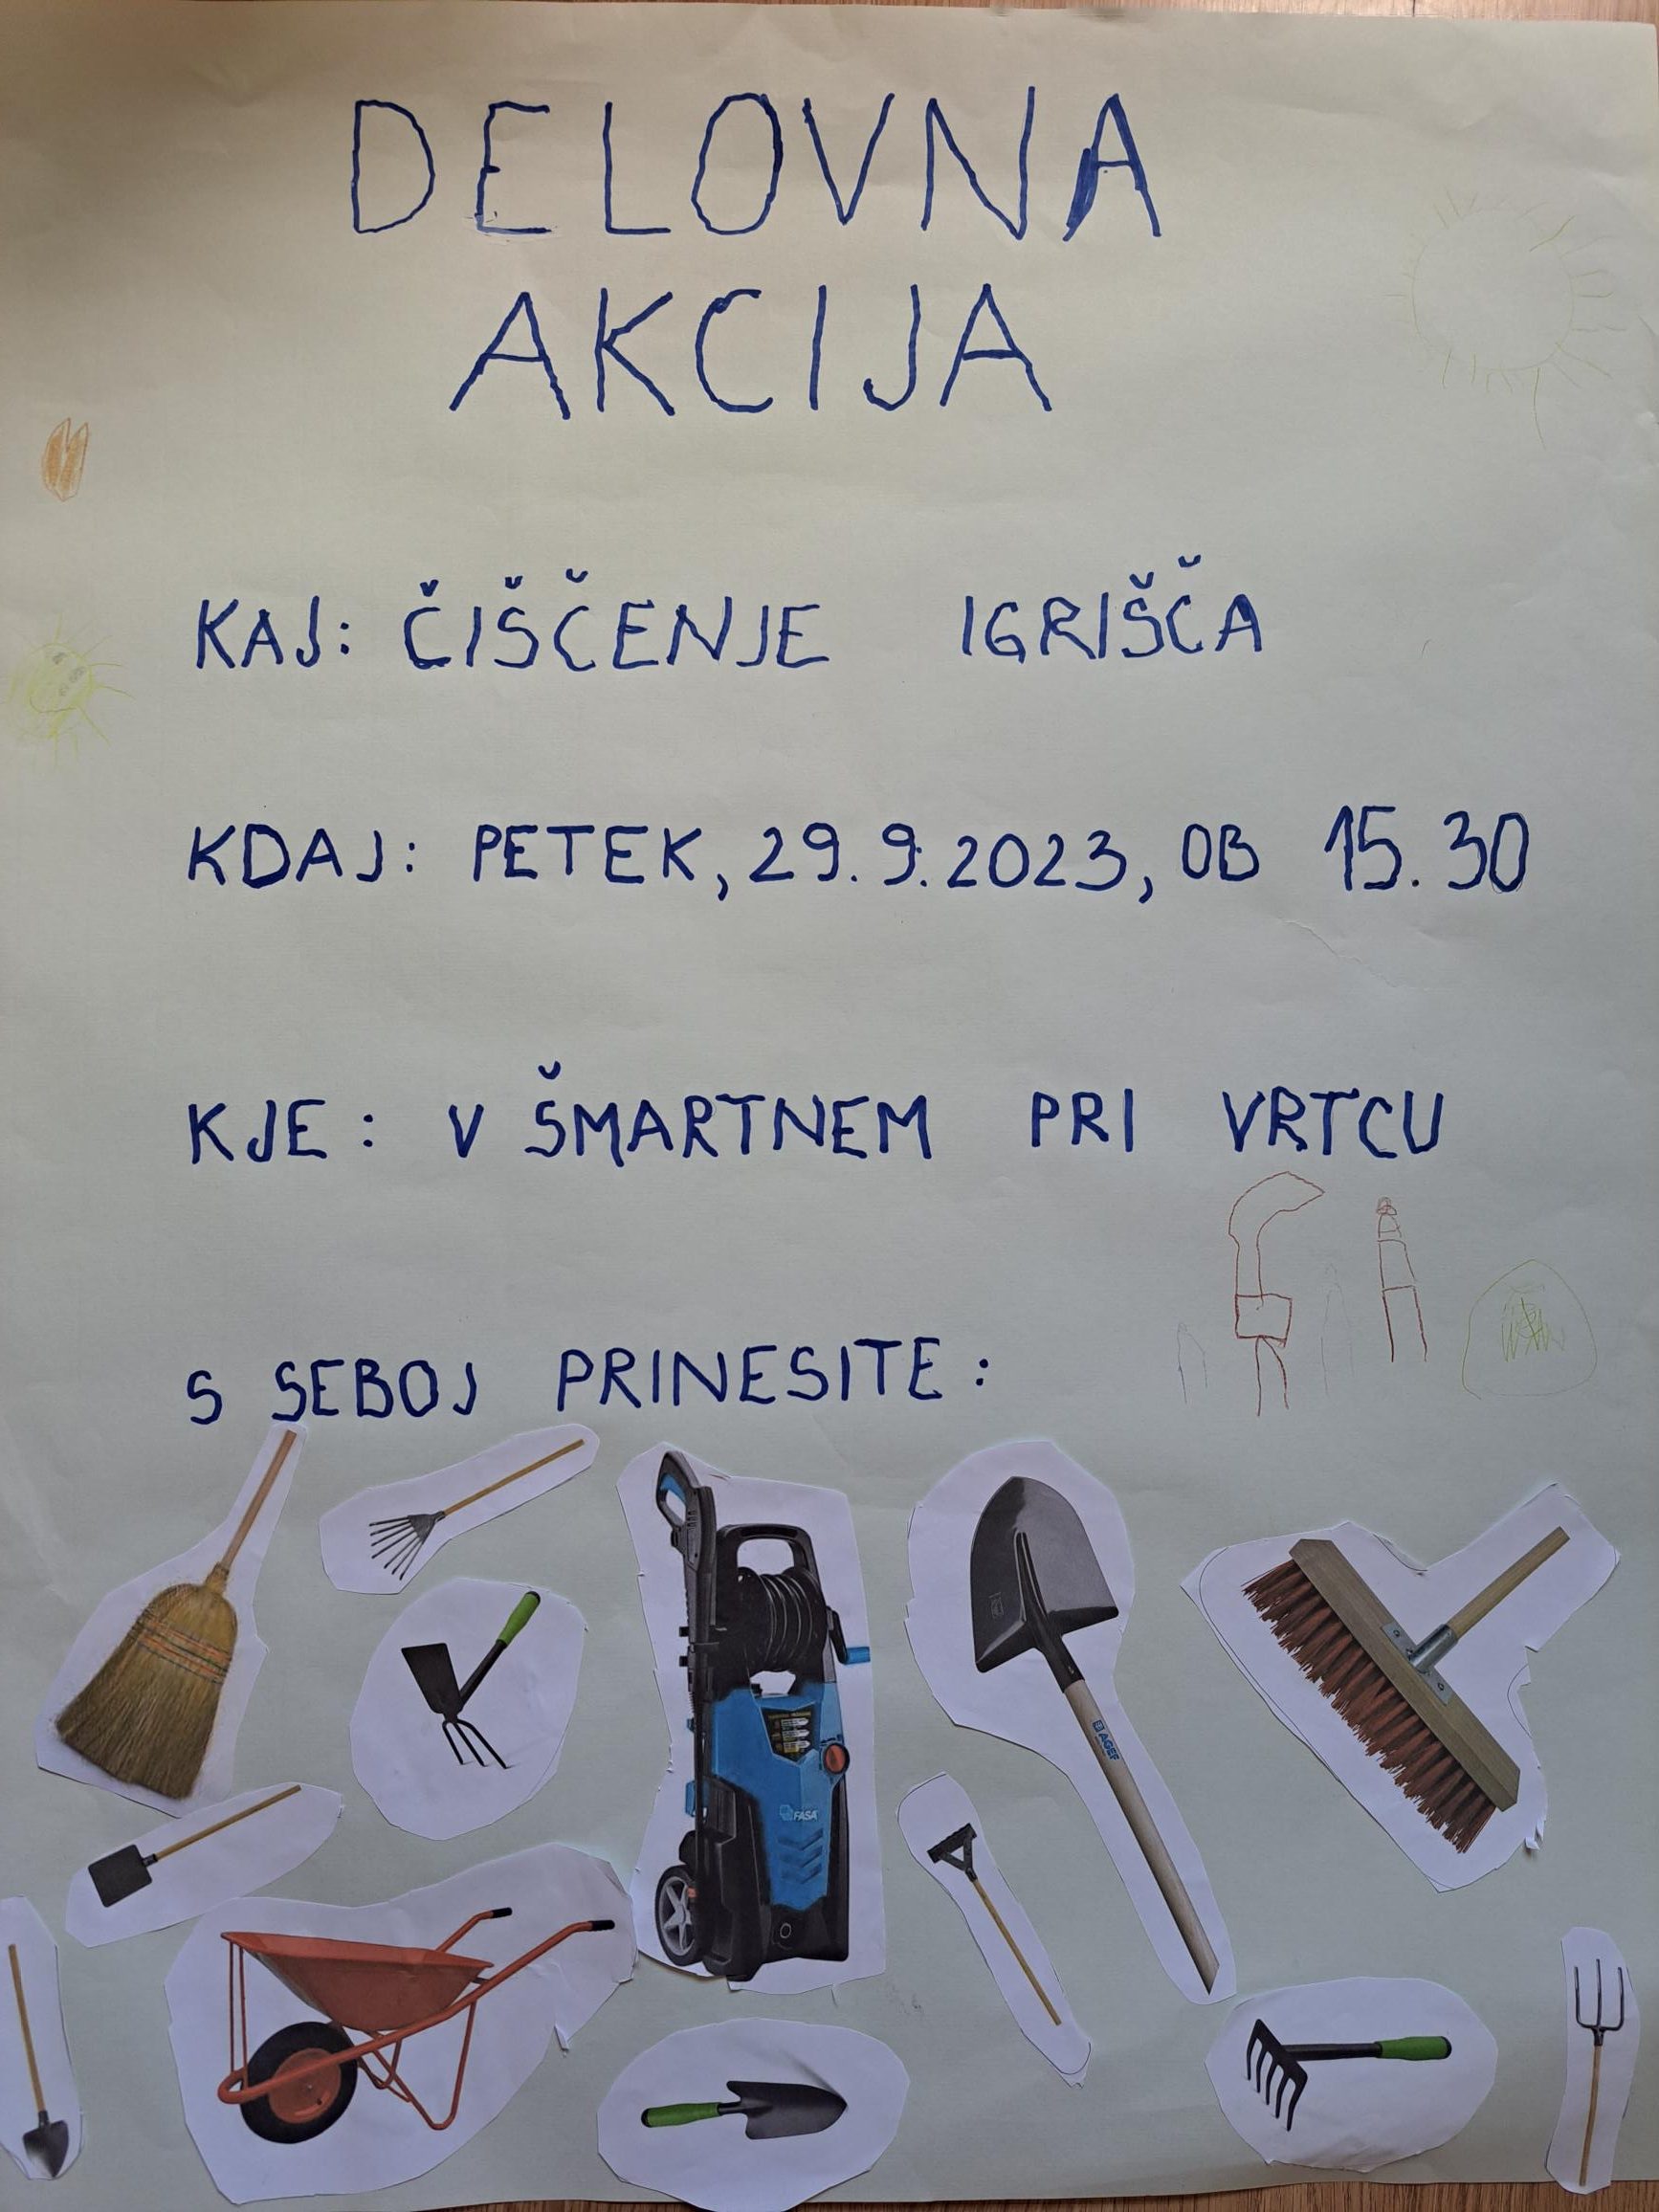 DELOVNA
AKCIJA
KAJ: ČIŠČENJE IGRIŠČA
KDAJ: PETEK, 29.9.2023, OB 15.30
KJE: V ŠMARTNEM PRI VRTCU
S SEBOJ PRINESITE:
AGEF
FASA